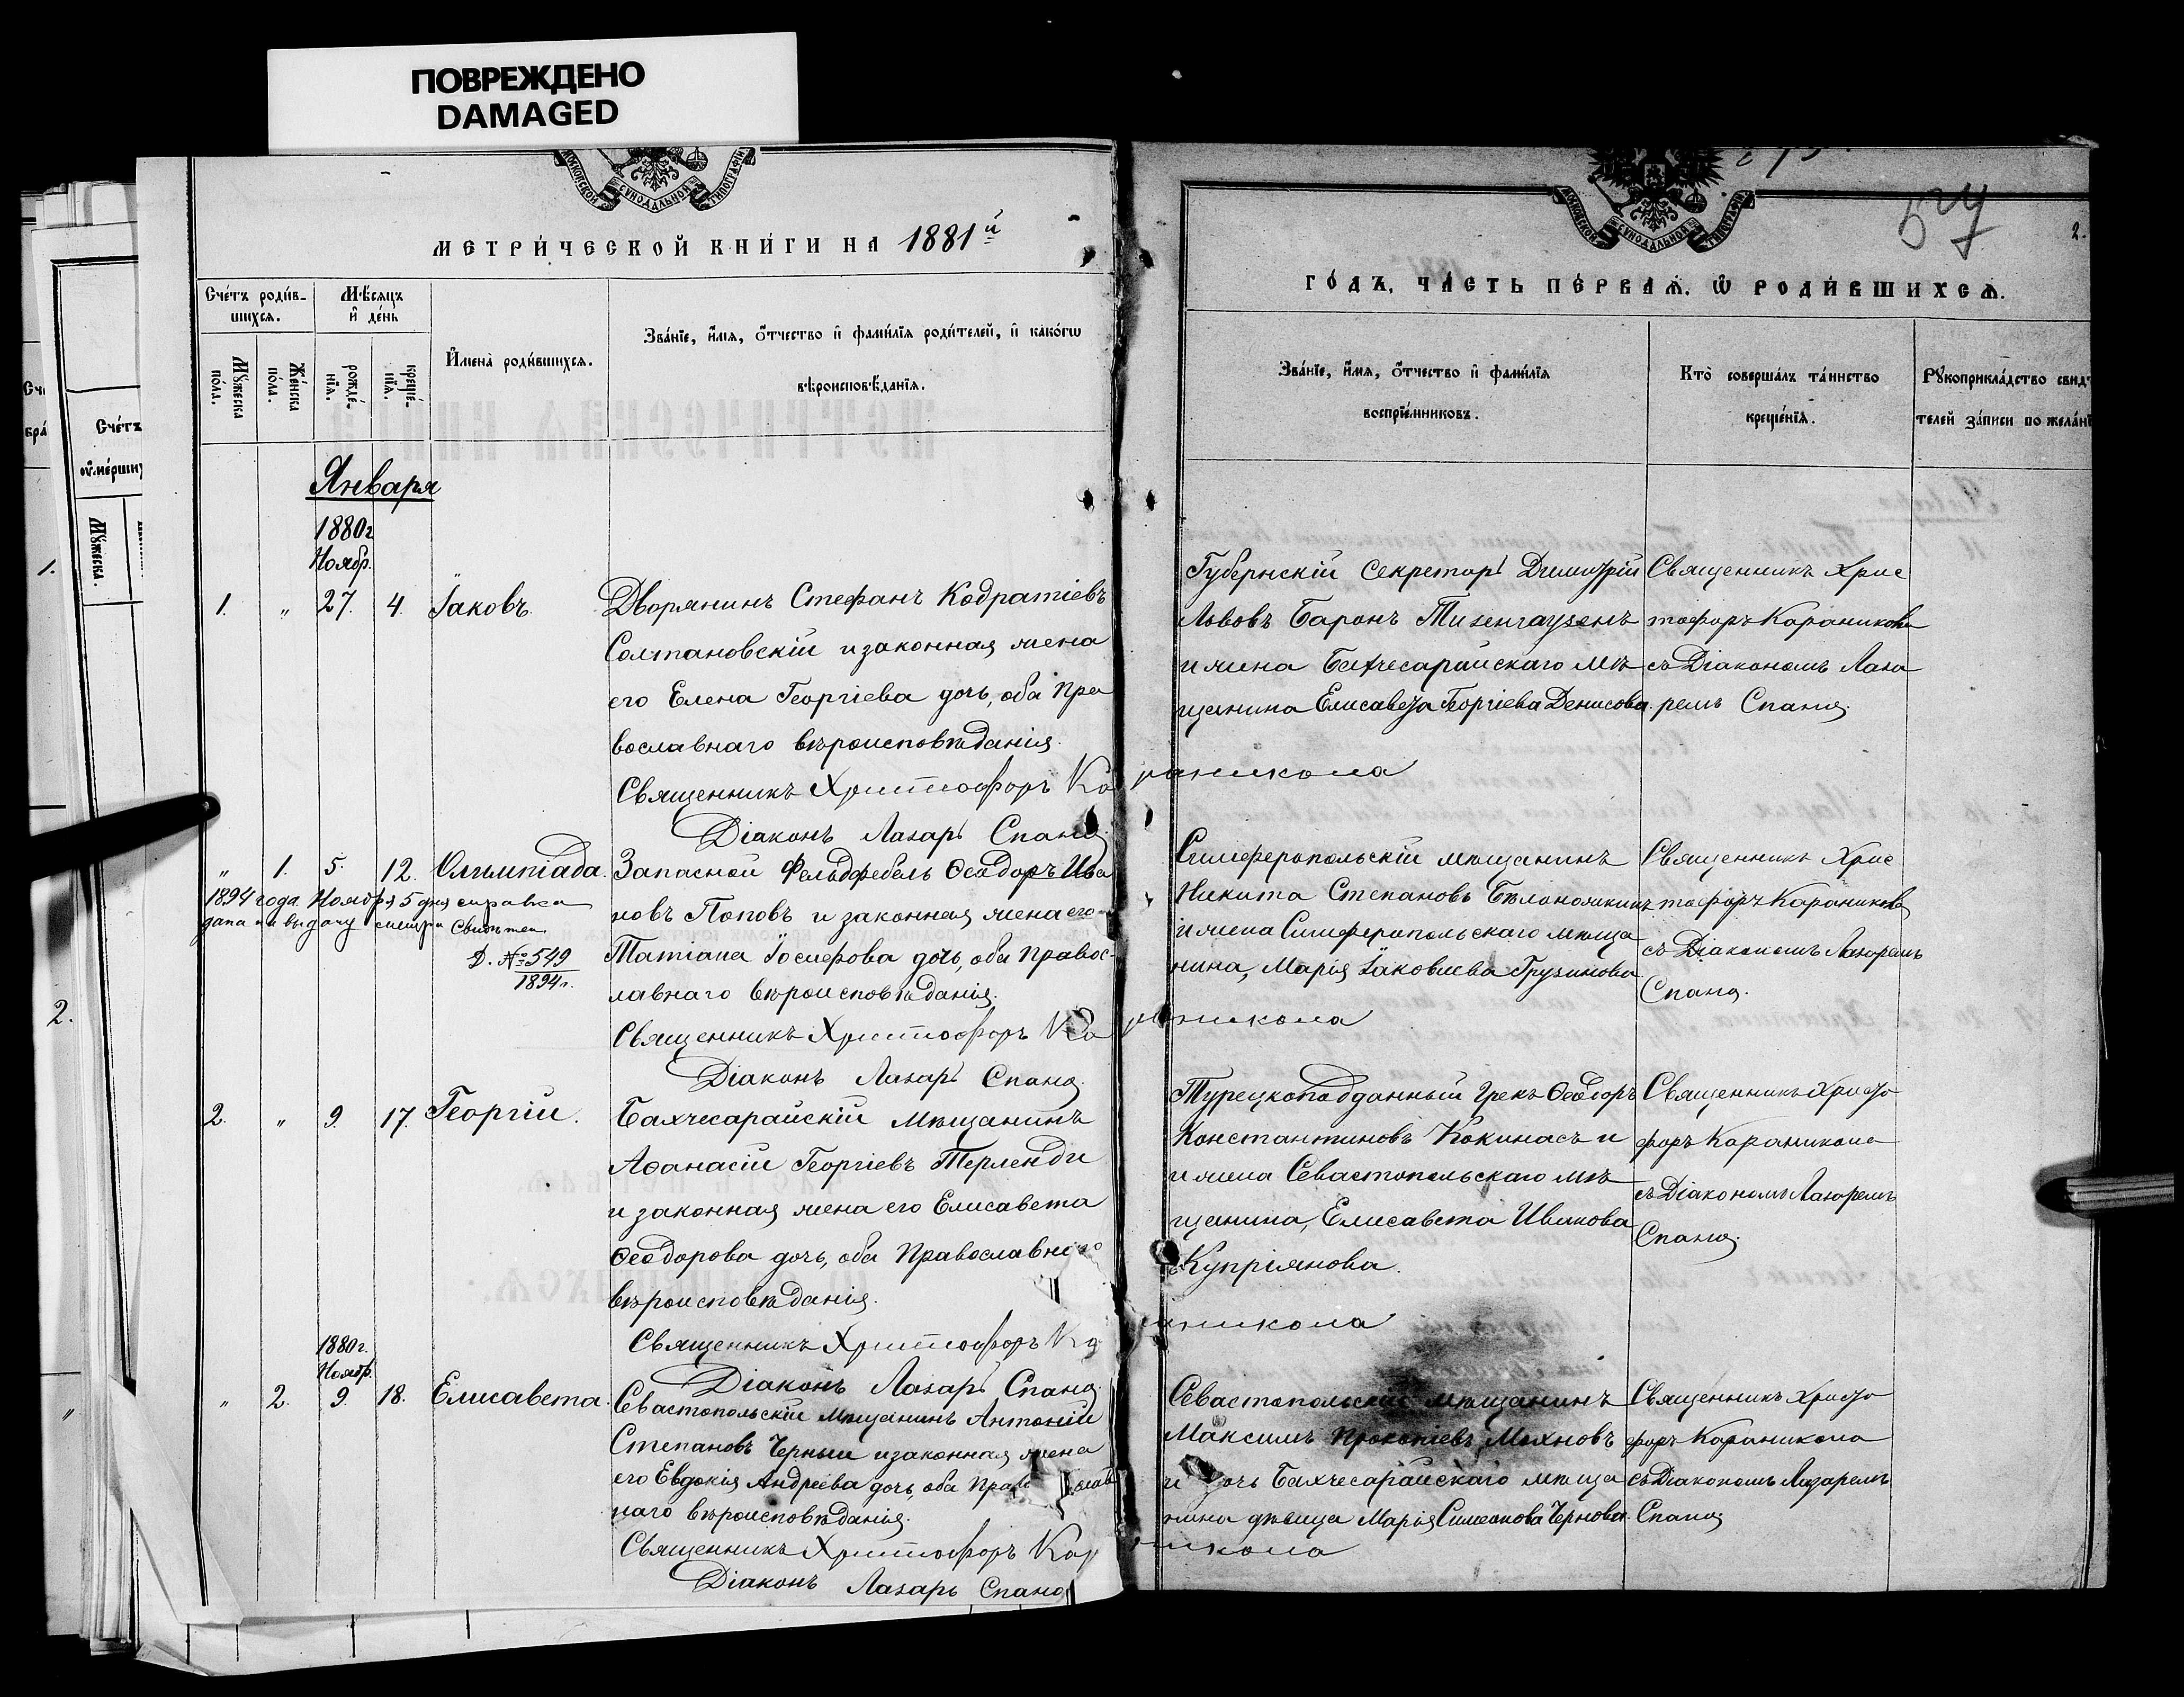 ПОВРЕЖДЕНО
DAMAGED
МОСКОВСКОЙ СѴНОДАЛЬНОЙ ТИПОГРАФІИ
МЕТРИ́ЧЕСКОЙ КНИ́ГИ НА 1881й
Сче́тъ роди́в-
шихся.
Мѣ́сяцъ
и҆ де́нь
Мꙋ́жеска
по́ла.
Же́нска
по́ла.
рожде́-
нїя.
креще́-
нїя.
И҆мена̀ роди́вшихся.
Зва́нїе, и҆́мя, ѻ҆́тчество и҆ фами́лїя роди́телей, и҆ како́гѡ
вѣроисповѣ́данїя.
Января
1880г
Ноябр.
1. " 27. 4. Іаковъ.
Дворянинъ Стефанъ Кодратіевъ
Солтановскій и законная жена
его Елена Георгіева дочь, оба Пра
вославнаго вѣроисповѣданія.
Священникъ Христофоръ Караникола
Діаконъ Лазарь Спано.
" 1. 5. 12. Олимпіада.
1894 года Ноября 5 дня справка
дана на выдачу
Д. № 549
1894 г.
Запасной Фельдфебель Ѳеодоръ Ива
новъ Поповъ и законная жена его
Татіана Іосифова дочь, оба Правос-
лавнаго вѣроисповѣданія.
Священникъ Христофоръ Караникола
Діаконъ Лазарь Спано.
2. " 9. 17. Георгій.
Бахчесарайскій Мѣщанинъ
Аѳанасій Георгіевъ Терленди
и законная жена его Елисавета
Ѳеодорова дочь, оба Православнаго
вѣроисповѣданія.
Священникъ Христофоръ Караникола
Діаконъ Лазарь Спано
1880г.
Ноябр.
" 2. 9. 18. Елисавета.
Севастопольскій Мѣщанинъ Антоній
Степановъ Черный и законная жена
его Евдокія Андреева дочь, оба Православ
наго вѣроисповѣданія.
Священникъ Христофоръ Караникола
Діаконъ Лазарь Спано
МОСКОВСКОЙ СѴНОДАЛЬНОЙ ТИПОГРАФІИ
2.
ГО́ДЪ, ЧА́СТЬ ПЕ́РВАЯ, Ѡ РОДИ́ВШИХСЯ.
Зва́нїе, и҆́мя, ѻ҆́тчество и҆ фами́лїя
воспрїе́мниковъ.
Кто̀ соверша́лъ та́инство
креще́нїя.
Рꙋкоприкла́дство свидѣ
телей за́писи по жела́нї
Губернскій Секретарь Димитрій
Львовъ Баронъ Тизенгаузенъ
и жена Бахчесарайскаго мѣ
щанина Елисавета Георгіева Денисова.
Священникъ Хрис
тофоръ Караникола
съ Діакономъ Лаза
ремъ Спано.
Симферопольскій мѣщанинъ
Никита Степановъ Бѣлоножкинъ
и жена Симферопольскаго мѣща
нина, Марія Іаковлева Грузинова
Священникъ Хрис
тофоръ Караникола
съ Діакономъ Лазаремъ
Спано.
Турецкоподданный Грекъ Ѳеодоръ
Константиновъ Кокинасъ и
и жена Севастопольскаго мѣ
щанина, Елисавета Иванова
Купріянова.
Священникъ Христо
форъ Караникола
съ Діакономъ Лазаремъ
Спано.
Севастопольскій мѣщанинъ
Максимъ Прокопіевъ Мохновъ
и дочь Бахчесарайскаго мѣща
нина дѣвица Марія Симеонова Чернова.
Священникъ Христо
форъ Караникола
съ Діакономъ Лазаремъ
Спано
Счетъ
Мꙋ́жеска.
1.
2.